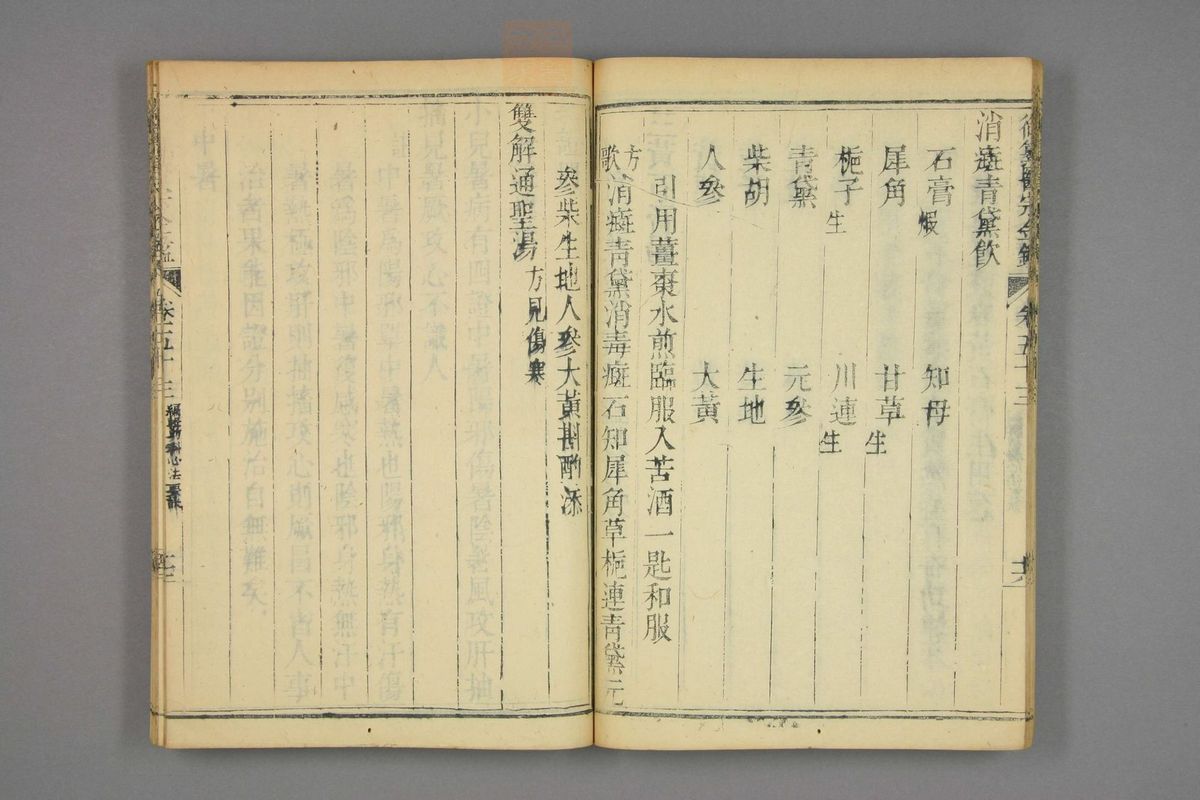 御纂醫宗金鑑 卷五十三
消癍青黛飲
石膏煅 知母
犀角 甘草生
梔子生 川連生
青黛 元參
柴胡 生地
人參 大黃
引用薑棗水煎臨服入苦酒一匙和服
方歌 消癍青黛消毒癍石知犀角草梔連青黛元
參柴生地人參大黃斟酌添
雙解通聖湯 方見傷寒
卷五十三 編輯幼科心法要訣